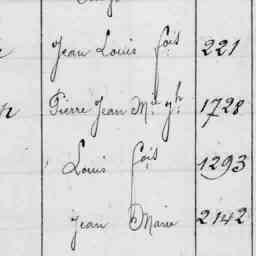 Jean Louis fois 221
Pierre Jean M.ie 1728
Louis fois 1293
Jean Marie 2142